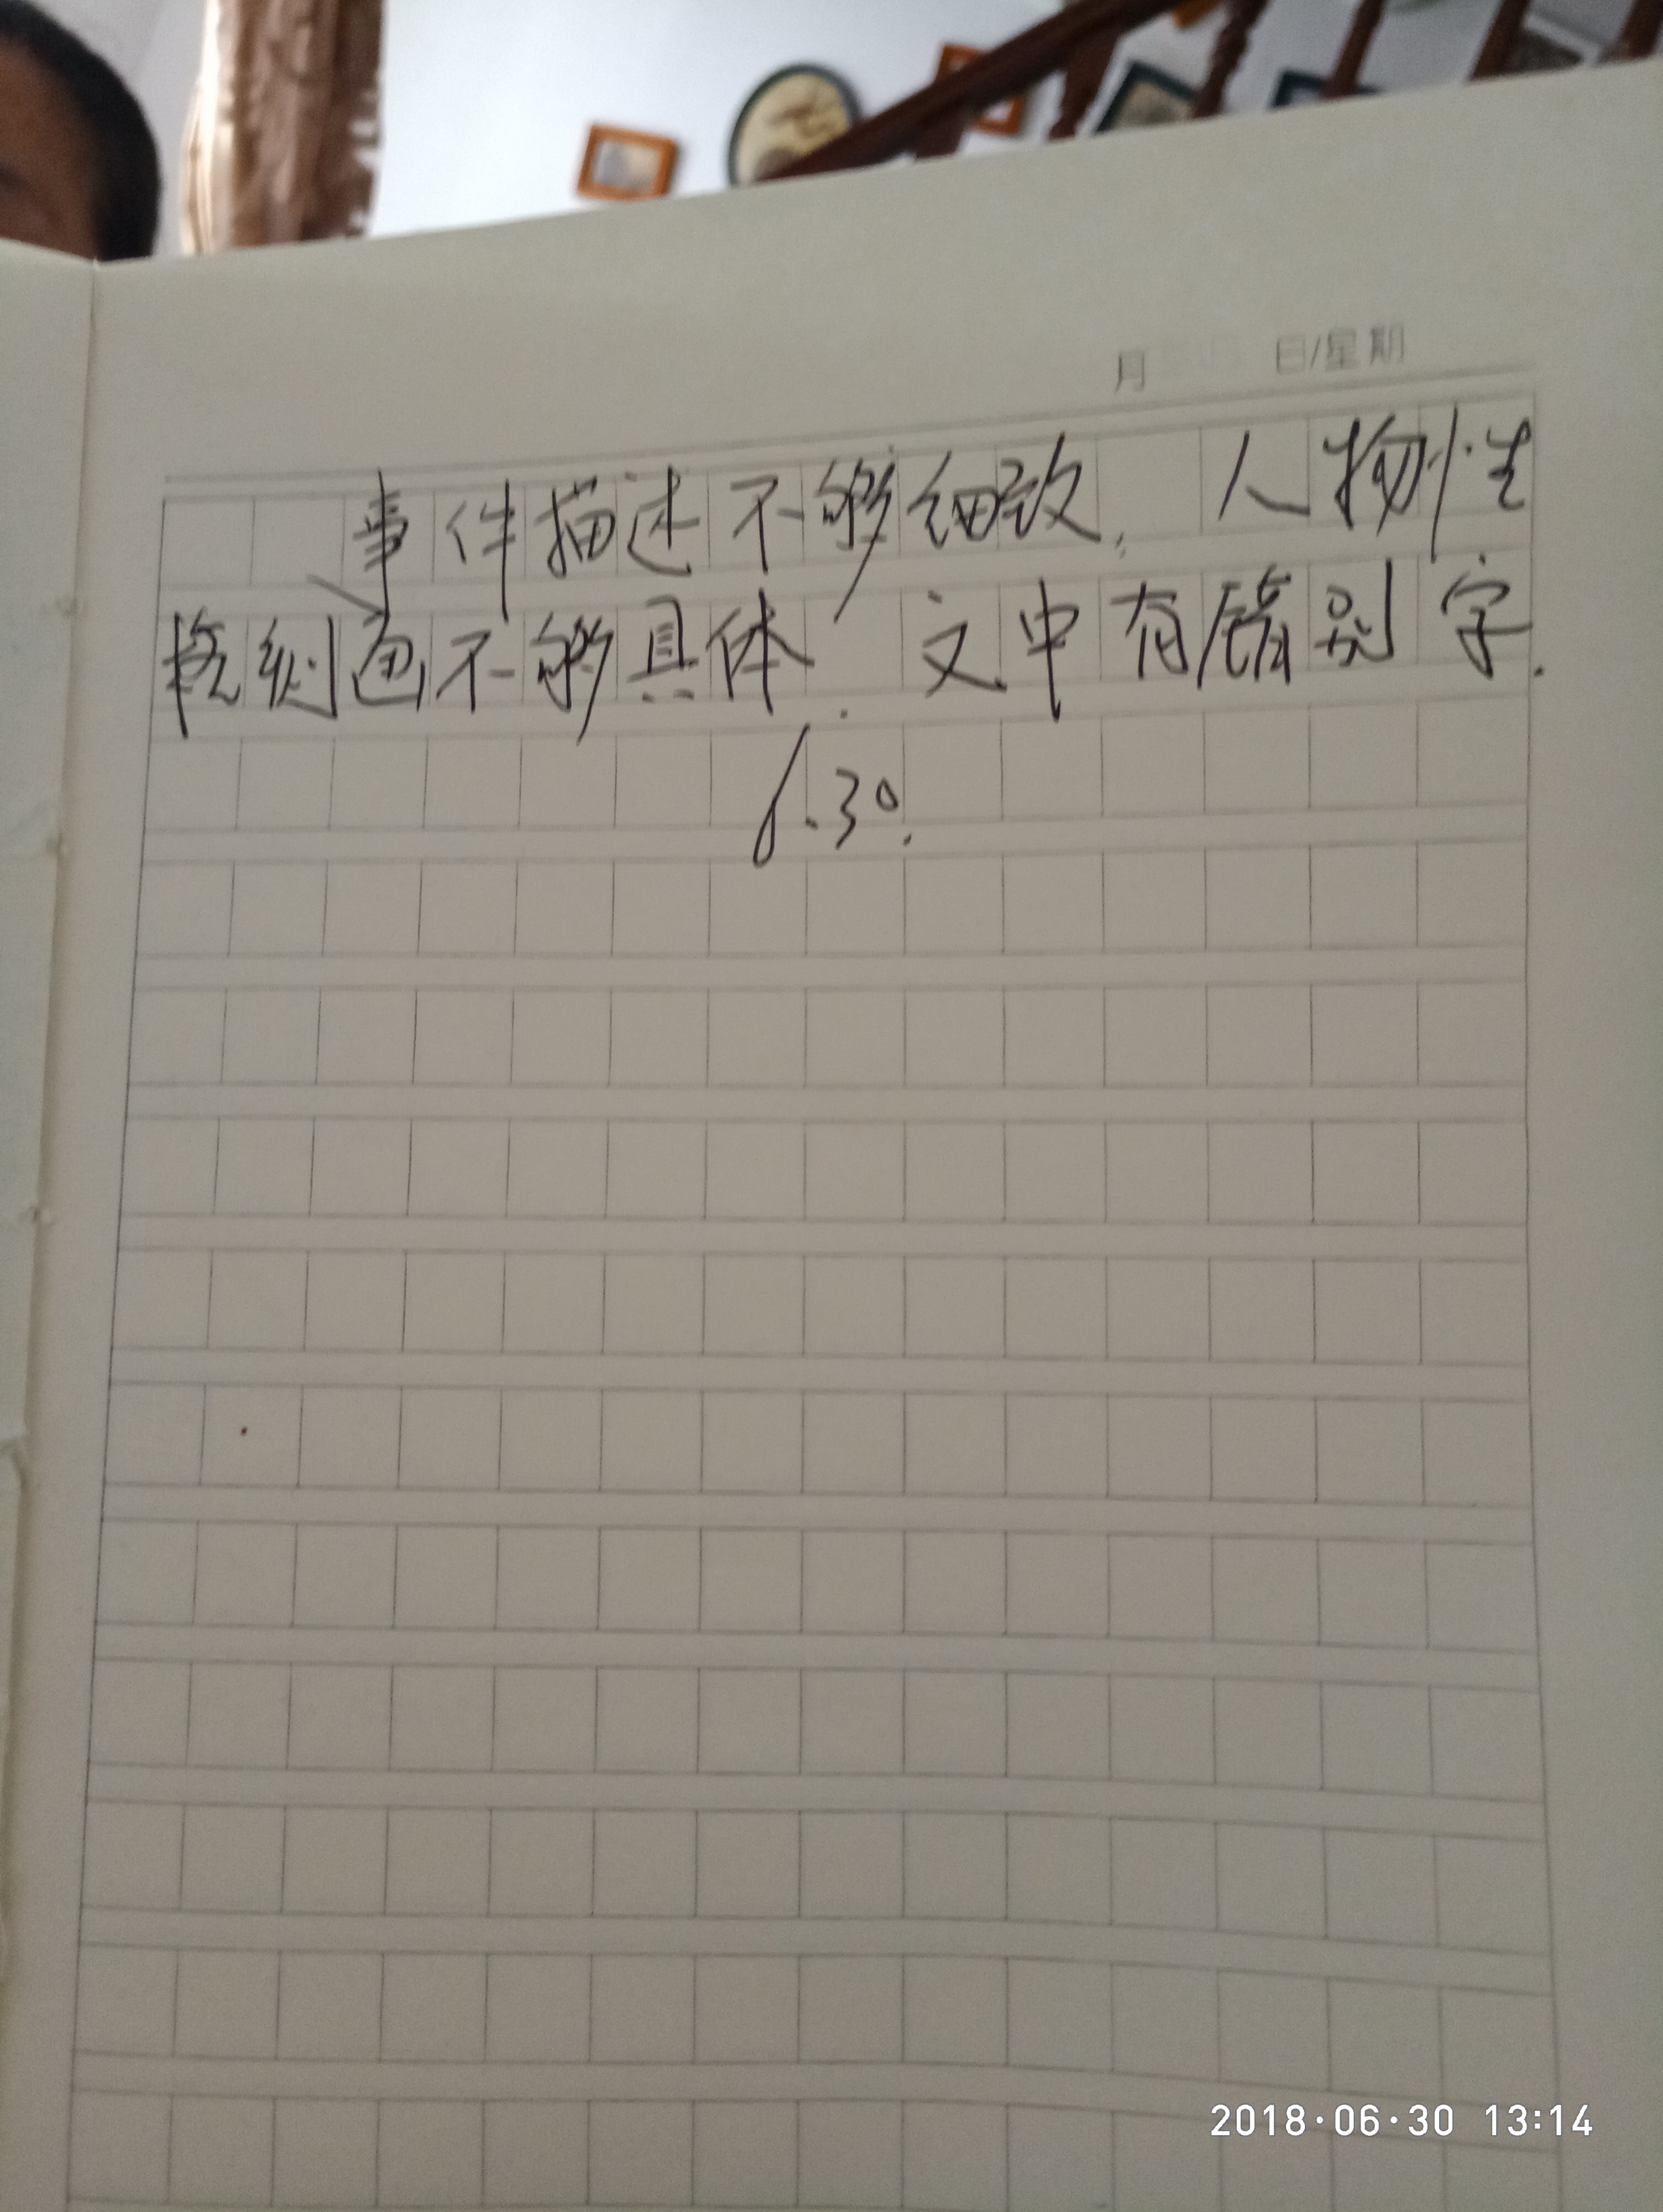 月 日/星期
事件描述不够细致. 人物性
格刻画不够具体. 文中有错别字.
6.30.
2018·06·30 13:14